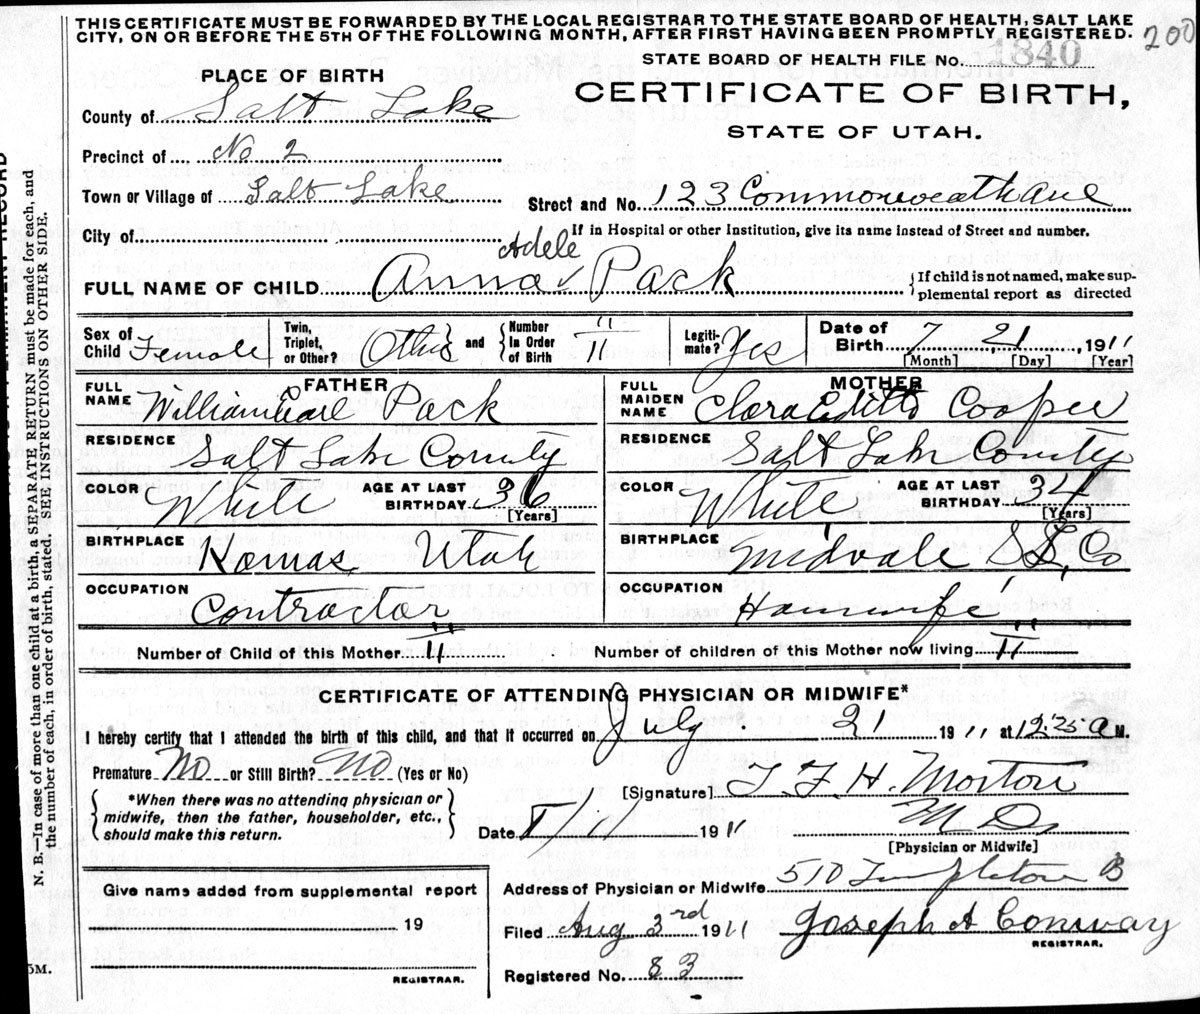 THIS CERTIFICATE MUST BE FORWARDED BY THE LOCAL REGISTRAR TO THE STATE BOARD OF HEALTH, SALT LAKE
CITY, ON OR BEFORE THE 5TH OF THE FOLLOWING MONTH, AFTER FIRST HAVING BEEN PROMPTLY REGISTERED.
200
STATE BOARD OF HEALTH FILE No. 1840
PLACE OF BIRTH
CERTIFICATE OF BIRTH,
STATE OF UTAH.
County of Salt Lake
Precinct of No 2
Town or Village of Salt Lake
Street and No. 123 Commonwealth Ave
City of
If in Hospital or other Institution, give its name instead of Street and number.
Adele
FULL NAME OF CHILD Anna v Pack
{If child is not named, make supplemental report as directed
Sex of Child Female
Twin, Triplet, or Other? Other } and { Number in Order of Birth 11
Legitimate? Yes
Date of Birth 7 21 1911
[Month] [Day] [Year]
FATHER
FULL NAME William Earl Pack
RESIDENCE Salt Lake County
COLOR White AGE AT LAST BIRTHDAY 36 [Years]
BIRTHPLACE Kamas, Utah
OCCUPATION Contractor
MOTHER
FULL MAIDEN NAME Clara Edith Cooper
RESIDENCE Salt Lake County
COLOR White AGE AT LAST BIRTHDAY 34 [Years]
BIRTHPLACE Midvale S L Co
OCCUPATION Housewife
Number of Child of this Mother 11
Number of children of this Mother now living 11
CERTIFICATE OF ATTENDING PHYSICIAN OR MIDWIFE*
I hereby certify that I attended the birth of this child, and that it occurred on July 21 1911 at 12.25 A M.
Premature No or Still Birth? No (Yes or No)
{ *When there was no attending physician or
midwife, then the father, householder, etc.,
should make this return. }
[Signature] T. F. H. Morton
M D
[Physician or Midwife]
Date 1911
Address of Physician or Midwife 510 Templeton B
Filed Aug 3rd 1911 Joseph A Conway
REGISTRAR.
Registered No. 83
Give name added from supplemental report
19
REGISTRAR.
5M.
N. B.—In case of more than one child at a birth, a SEPARATE RETURN must be made for each, and
the number of each, in order of birth, stated. SEE INSTRUCTIONS ON OTHER SIDE.
PERMANENT RECORD